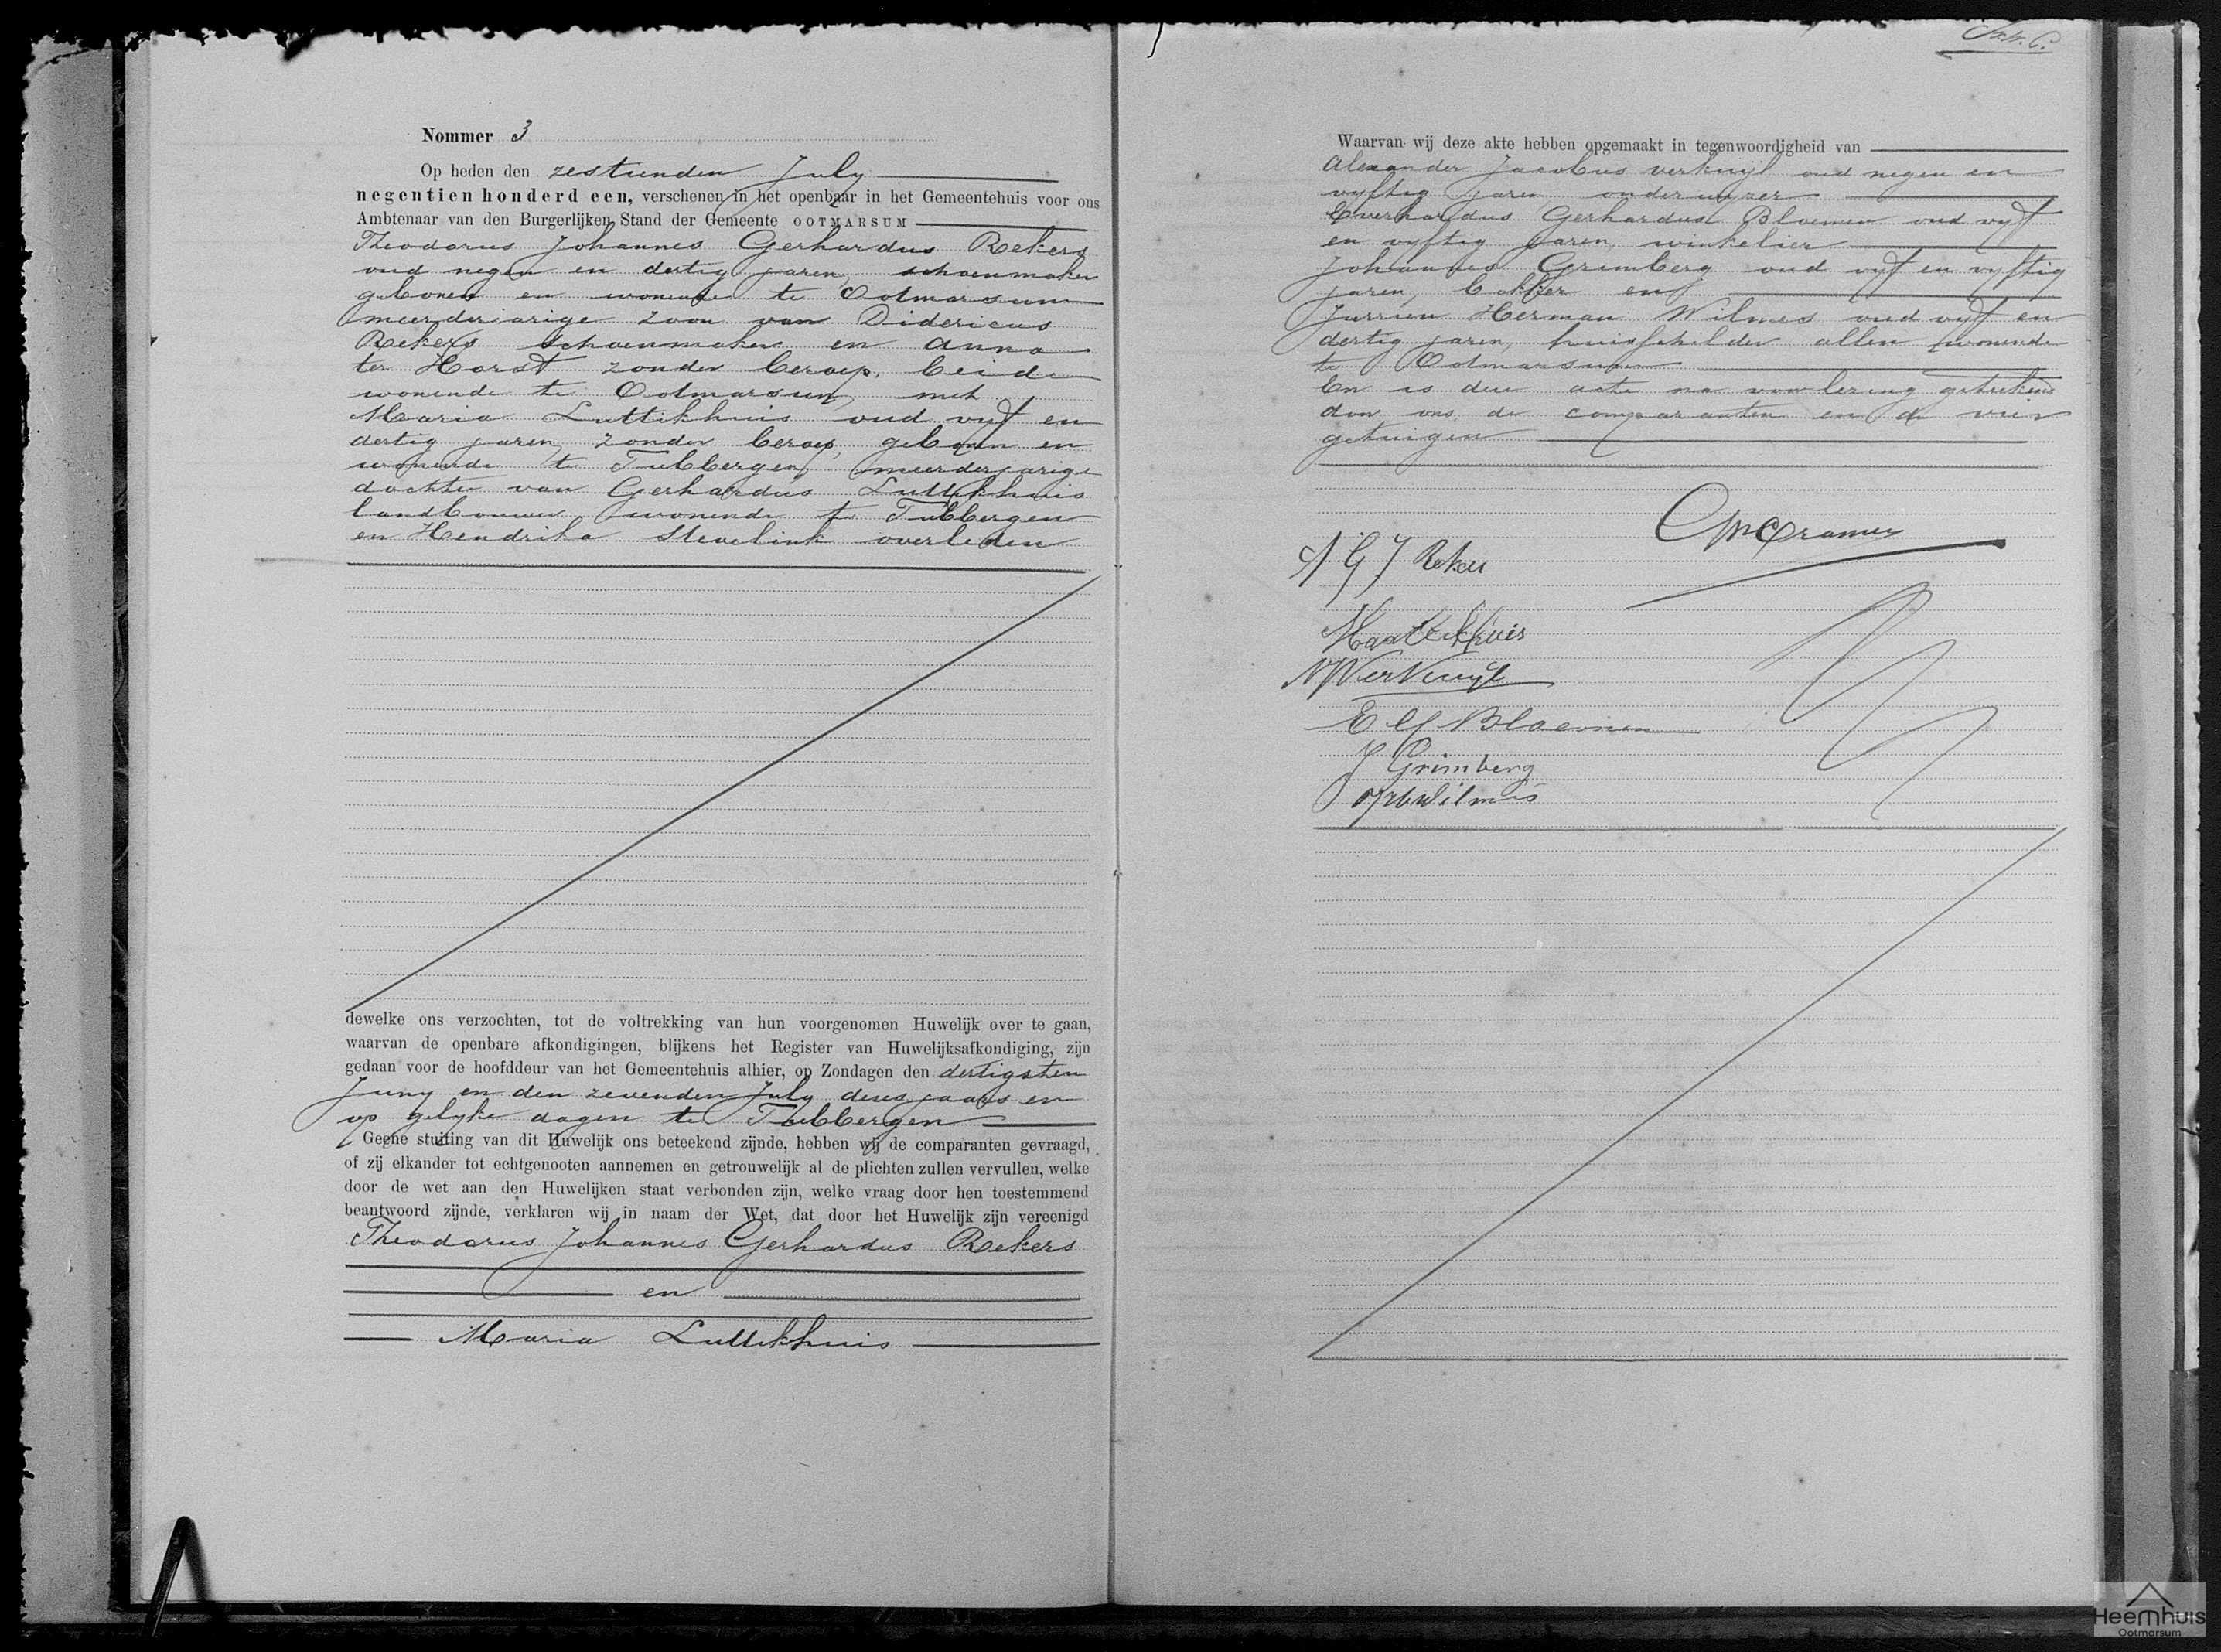 Nommer 3
Op heden den zestienden July
negentien honderd een, verschenen in het openbaar in het Gemeentehuis voor ons
Ambtenaar van den Burgerlijken Stand der Gemeente OOTMARSUM
Theodorus Johannes Gerhardus Rekers
oud negen en dertig jaren, schoenmaker
geboren en wonende te Ootmarsum
meerderjarige zoon van Didericus
Rekers schoenmaker en Anna
ter Horst zonder beroep, beide
wonende te Ootmarsum, met
Maria Luttikhuis oud vyf en
dertig jaren, zonder beroep, geboren en
wonende te Tubbergen, meerderjarige
dochter van Gerhardus Luttikhuis
landbouwer wonende te Tubbergen
en Hendrika Stevelink overleden
dewelke ons verzochten, tot de voltrekking van hun voorgenomen Huwelijk over te gaan,
waarvan de openbare afkondigingen, blijkens het Register van Huwelijksafkondiging, zijn
gedaan voor de hoofddeur van het Gemeentehuis alhier, op Zondagen den dertigsten
Juny en den zevenden July dezes jaars en
op gelyke dagen te Tubbergen
Geene stuiting van dit Huwelijk ons beteekend zijnde, hebben wij de comparanten gevraagd,
of zij elkander tot echtgenooten aannemen en getrouwelijk al de plichten zullen vervullen, welke
door de wet aan den Huwelijken staat verbonden zijn, welke vraag door hen toestemmend
beantwoord zijnde, verklaren wij in naam der Wet, dat door het Huwelijk zijn vereenigd
Theodorus Johannes Gerhardus Rekers
en
Maria Luttikhuis
Waarvan wij deze akte hebben opgemaakt in tegenwoordigheid van
Alexander Jacobus Verkuijl oud negen en
vyftig jaren, onderwyzer
Everhardus Gerhardus Bloemen oud vyf
en vyftig jaren, winkelier
Johannes Grimberg oud vyf en vyftig
jaren, bakker en
Jurrien Herman Wilmes oud vyf en
dertig jaren, huisschilder allen wonende
te Ootmarsum
En is deze acte na voorlezing geteekend
door ons, de comparanten en de vier
getuigen
Cramer
G J Rekers
Verkuijl
E G Bloemen
J Grimberg
J H Wilmes
Heemhuis
Ootmarsum